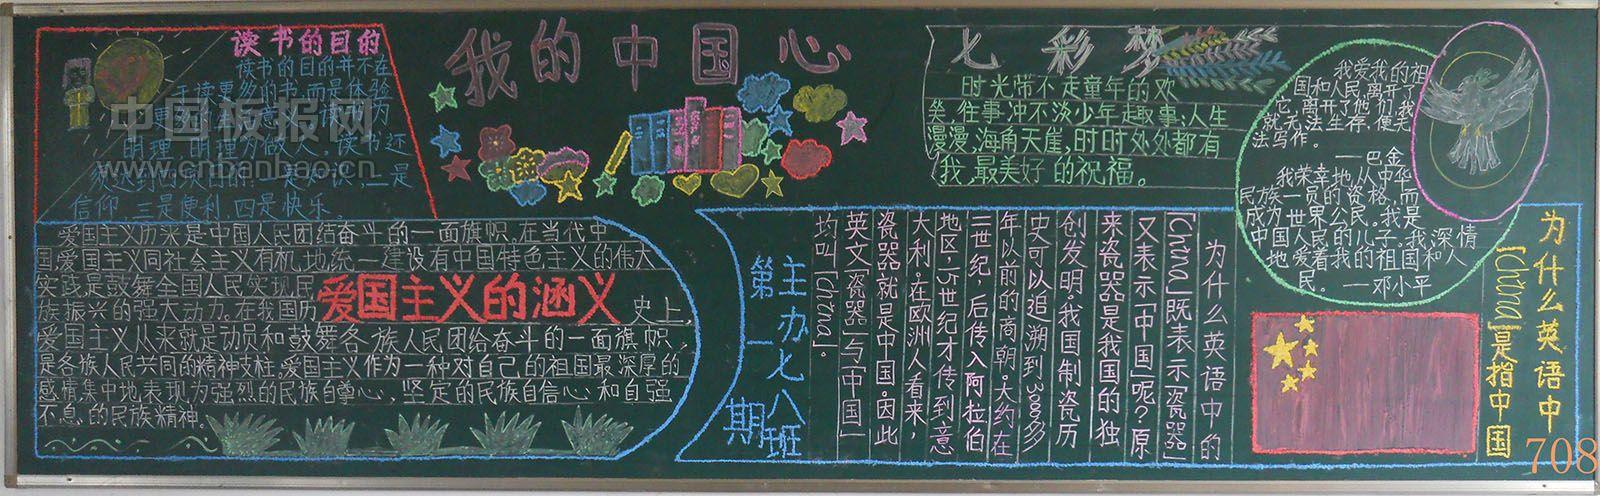 读书的目的
读书的目的并不在
于读更多的书,而是体验
更多的人生意义。读书为
明理,明理为做人,读书还
须达到四项目的:一是知识,二是
信仰,三是便利,四是快乐。
我的中国心
七彩梦
时光带不走童年的欢
笑,往事冲不淡少年趣事;人生
漫漫,海角天崖,时时处处都有
我,最美好的祝福。
我爱我的祖
国和人民,离开了
它,离开了他们,我
就无法生存,便无
法写作。
——巴金
我荣幸地,从中华
民族一员的资格,而
成为世界公民。我是
中国人民的儿子。我深情
地爱着我的祖国和人
民。 ——邓小平
爱国主义历来是中国人民团结奋斗的一面旗帜。在当代中
国,爱国主义同社会主义有机地统一建设有中国特色主义的伟大
实践是鼓舞全国人民实现民
族振兴的强大动力。在我国历
爱国主义的涵义
史上,
爱国主义从来就是动员和鼓舞各族人民团给奋斗的一面旗帜,
是各族人民共同的精神支柱。爱国主义作为一种对自己的祖国最深厚的
感情集中地表现为强烈的民族自尊心,坚定的民族自信心和自强
不息的民族精神。
为什么英语中
「China」是指中国
为什么英语中的
「China」既表示「瓷器」
又表示「中国」呢?原
来瓷器是我国的独
创发明。我国制瓷历
史可以追溯到3000多
年以前的商朝。大约在
三世纪,后传入阿拉伯
地区,15世纪才传到意
大利。在欧洲人看来,
瓷器就是中国。因此
英文「瓷器」与「中国」
均叫「china」。
主办七八班
第一期
708
中国板报网
www.cnbanbao.cn